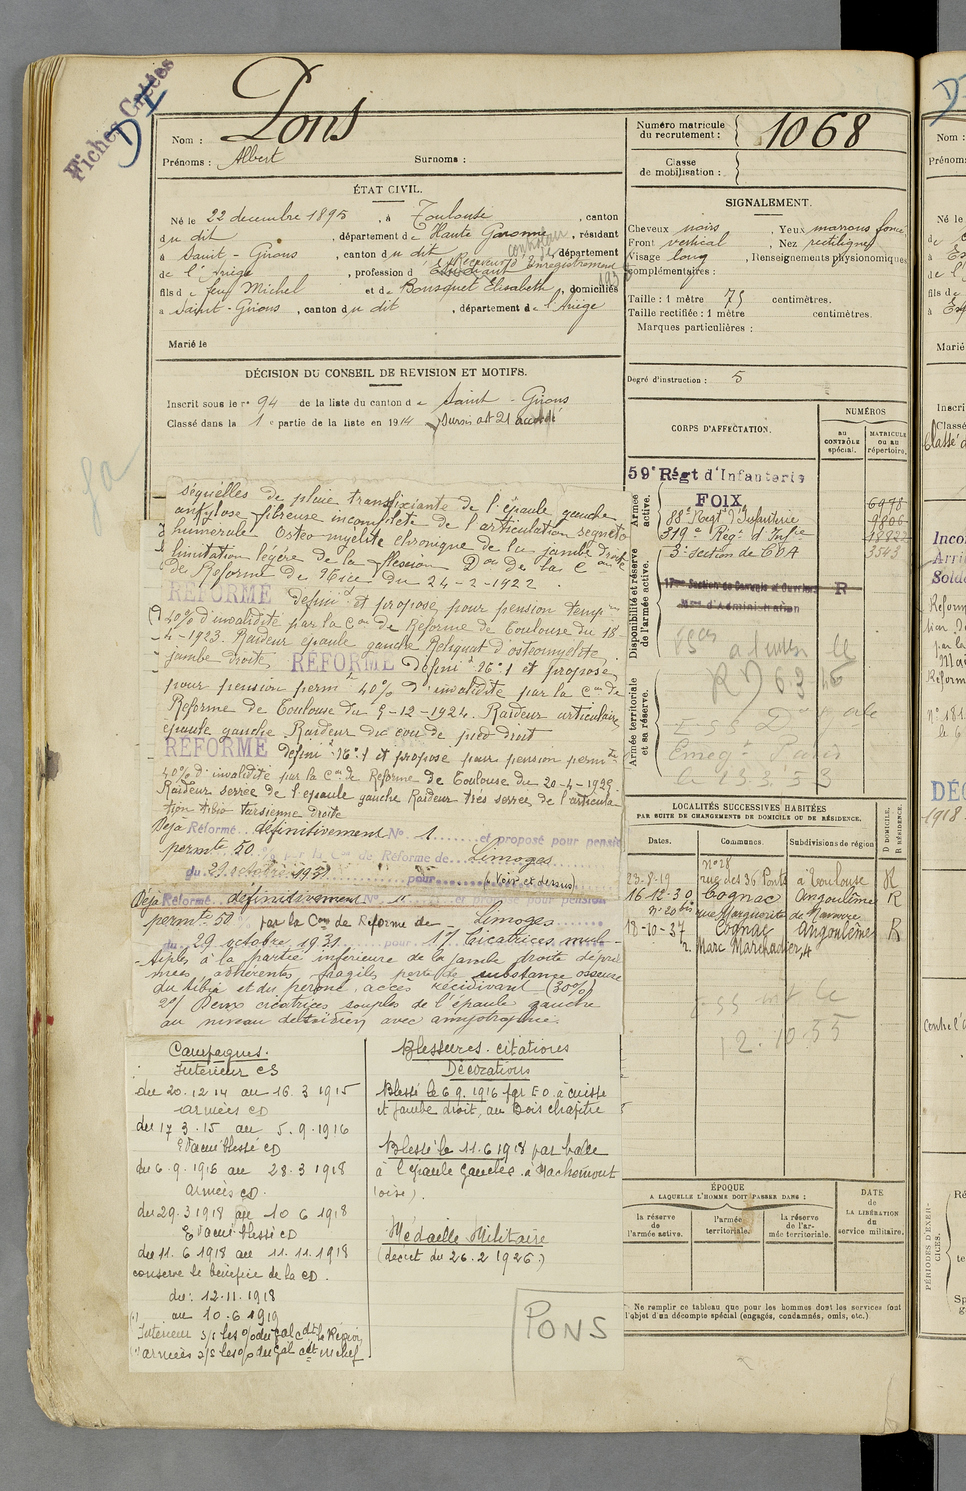 Fiches Créées
D I
Nom : Pons
Prénoms : Albert Surnoms :
Numéro matricule du recrutement : 1068
Classe de mobilisation :
ÉTAT CIVIL.
Né le 22 décembre 1895, à Toulouse, canton
du dit, département de Haute Garonne, résidant
à Saint-Girons, canton du dit, département
de l'Ariège, profession d'Étudiant Receveur Enregistrement
contrôleur
fils de feu Michel et de Bousquet Elisabeth, domiciliés
à Saint-Girons, canton du dit, département de l'Ariège
Marié le
DÉCISION DU CONSEIL DE REVISION ET MOTIFS.
Inscrit sous le no 94 de la liste du canton de Saint-Girons
Classé dans la 1e partie de la liste en 1914 Sursis art 21 accordé
séquelles de plaie transfixiante de l'épaule gauche
ankylose fibreuse incomplète de l'articulation
humérale Ostéo myélite chronique de la jambe droite
limitation légère de la flexion
de Réforme de du 24-2-1922
RÉFORMÉ définif et proposé pour pension temp
40% d'invalidité par la Con de Réforme de Toulouse du 18-
4-1923. Raideur épaule gauche Reliquat d'ostéomyélite
jambe droite RÉFORMÉ définif no 1 et proposé
pour pension permte 40% d'invalidité par la Con de
Réforme de Toulouse du 9-12-1924. Raideur articulaire
épaule gauche Raideur du cou de pied droit
RÉFORMÉ définif no 1 et proposé pour pension permte
40% d'invalidité par la Con de Réforme de Toulouse du 20-4-1929.
Raideur serrée de l'épaule gauche Raideur très serrée de l'articula
tion tibio tarsienne droite
Déjà Réformé définitivement No 1 et proposé pour pension
permte 50 % par la Con de Réforme de Limoges
du 29 octobre 1931 pour (Voir ci dessus)
Déjà Réformé définitivement No 1 et proposé pour pension
permte 50 par la Con de Réforme de Limoges
du 29 octobre 1931 pour 1°/ Cicatrices mul-
-tiples à la partie inférieure de la jambe droite dépri
mées, adhérentes, fragiles perte de substance osseuse
du tibia et du péroné, accès récidivant (30%)
2°/ Deux cicatrices souples de l'épaule gauche
au niveau deltoïdien avec amyotrophie.
Campagnes.
Intérieur CS
du 20.12.14 au 16.3.1915
armées CD
du 17.3.15 au 5.9.1916
Evacué blessé CD
du 6.9.1916 au 28.3.1918
armées CD.
du 29.3.1918 au 10.6.1918
Evacué blessé CD
du 11.6.1918 au 11.11.1918
conserve le bénéfice de la CD.
du: 12.11.1918
au 10.6.1919
Intérieur s/s les o/ du Gal cdt la Région
armées s/s les o/ du Gal cdt en chef
Blessures. Citations
Décorations
Blessé le 6.9.1916 par E.O. à cuisse
et jambe droit, au Bois chapitre
Blessé le 11.6.1918 par balle
à l'épaule gauche à Machemont
(oise).
Médaille Militaire
(décret du 26.2.1926)
PONS
SIGNALEMENT.
Cheveux noirs, Yeux marrons foncé
Front vertical, Nez rectiligne
Visage long, Renseignements physionomiques
complémentaires :
Taille : 1 mètre 75 centimètres.
Taille rectifiée : 1 mètre centimètres.
Marques particulières :
Degré d'instruction : 5
CORPS D'AFFECTATION.
NUMÉROS
AU CONTRÔLE spécial.
MATRICULE OU AU répertoire.
Armée active.
59e Régt d'Infanterie
FOIX 6978
88e Regt d'Infanterie 9806
319e Régt d'Infie 18822
Disponibilité et réserve de l'armée active.
3e Section de COA 3543
17me Section de Commis et Ouvriers R
Mres d'Administration
Armée territoriale et sa réserve.
LOCALITÉS SUCCESSIVES HABITÉES
PAR SUITE DE CHANGEMENTS DE DOMICILE OU DE RÉSIDENCE.
Dates. Communes. Subdivisions de région D DOMICILE. R RÉSIDENCE.
no 28
23-8-19 rue des 36 Ponts à Toulouse R
16-12-30 Cognac Angoulême R
no 20 bis rue Marguerite de Navarre
18-10-37 Cognac Angoulême R
r. Marc Marchadier, 4
12.10.55
ÉPOQUE
A LAQUELLE L'HOMME DOIT PASSER DANS :
la réserve de l'armée active.
l'armée territoriale.
la réserve de l'armée territoriale.
DATE de LA LIBÉRATION du service militaire.
Ne remplir ce tableau que pour les hommes dont les services font
l'objet d'un décompte spécial (engagés, condamnés, omis, etc.)